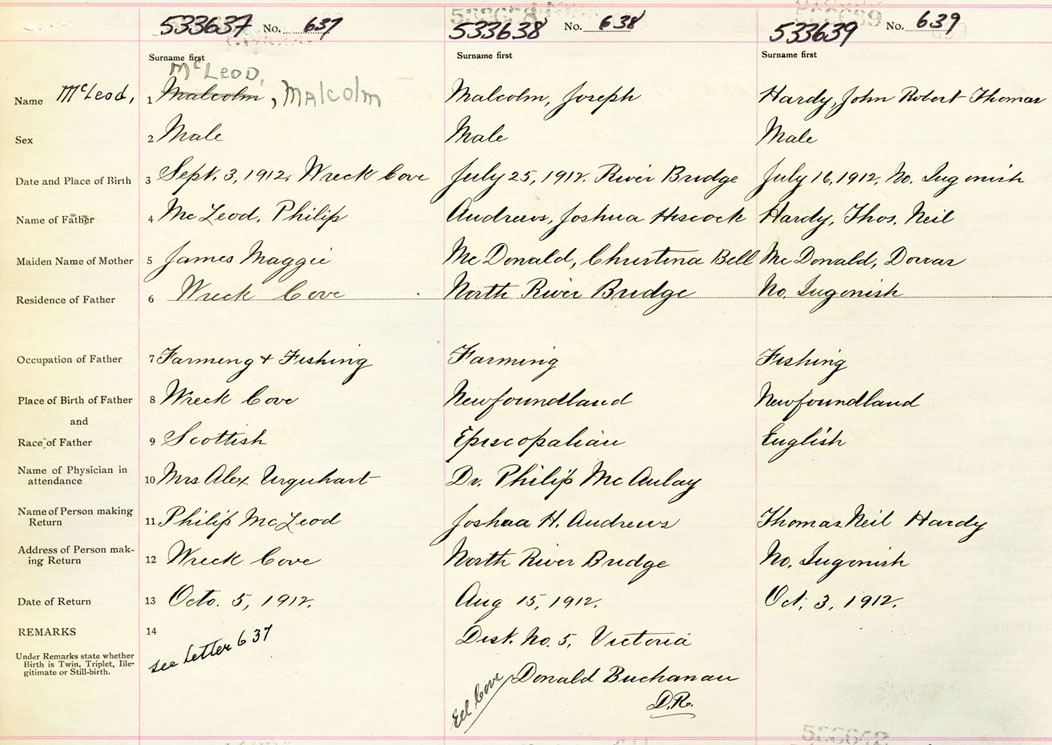 533637 No. 637 533638 No. 638 533639 No. 639
Surname first Surname first Surname first
McLeod,
Name McLeod, 1 Malcolm, Malcolm Malcolm, Joseph Hardy, John Robert Thomas
Sex 2 Male Male Male
Date and Place of Birth 3 Sept. 3, 1912, Wreck Cove July 25, 1912. River Bridge July 16, 1912, No. Ingonish
Name of Father 4 McLeod, Philip Andrews, Joshua Hiscock Hardy, Thos. Neil
Maiden Name of Mother 5 James Maggie McDonald, Christina Bell McDonald, Dorcas
Residence of Father 6 Wreck Cove North River Bridge No. Ingonish
Occupation of Father 7 Farming & Fishing Farming Fishing
Place of Birth of Father 8 Wreck Cove Newfoundland Newfoundland
and
Race of Father 9 Scottish Episcopalian English
Name of Physician in
attendance 10 Mrs Alex Urquhart Dr. Philip McAulay
Name of Person making
Return 11 Philip McLeod Joshua H. Andrews Thomas Neil Hardy
Address of Person mak-
ing Return 12 Wreck Cove North River Bridge No. Ingonish
Date of Return 13 Octo. 5, 1912. Aug 15, 1912. Oct. 3, 1912.
REMARKS 14 see Letter 637 Dist. No. 5, Victoria
Under Remarks state whether
Birth is Twin, Triplet, Ille-
gitimate or Still-birth.
Eel Cove Donald Buchanan
D.R.
533642